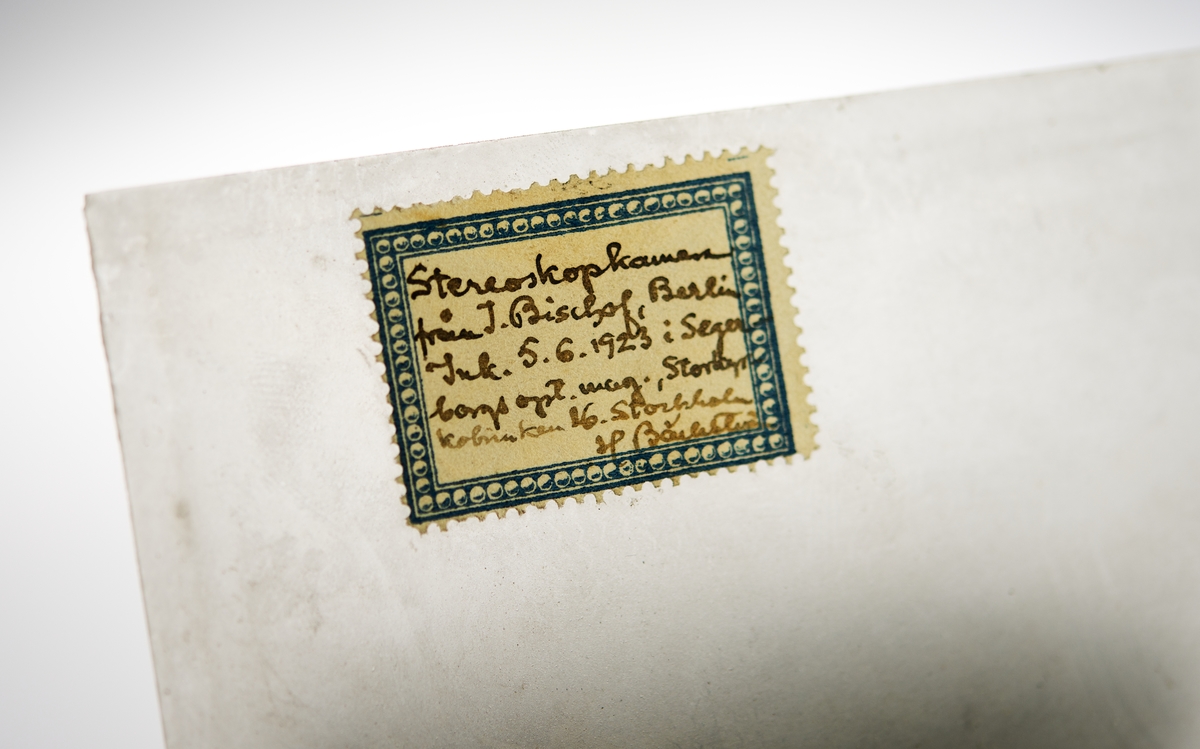 Stereoskopkamera
från J. Bischof, Berlin
Ink. 5.6.1923 i Seger
bergs opt. mag., Storkyr
kobrinken 16. Stockholm
H Bäckström